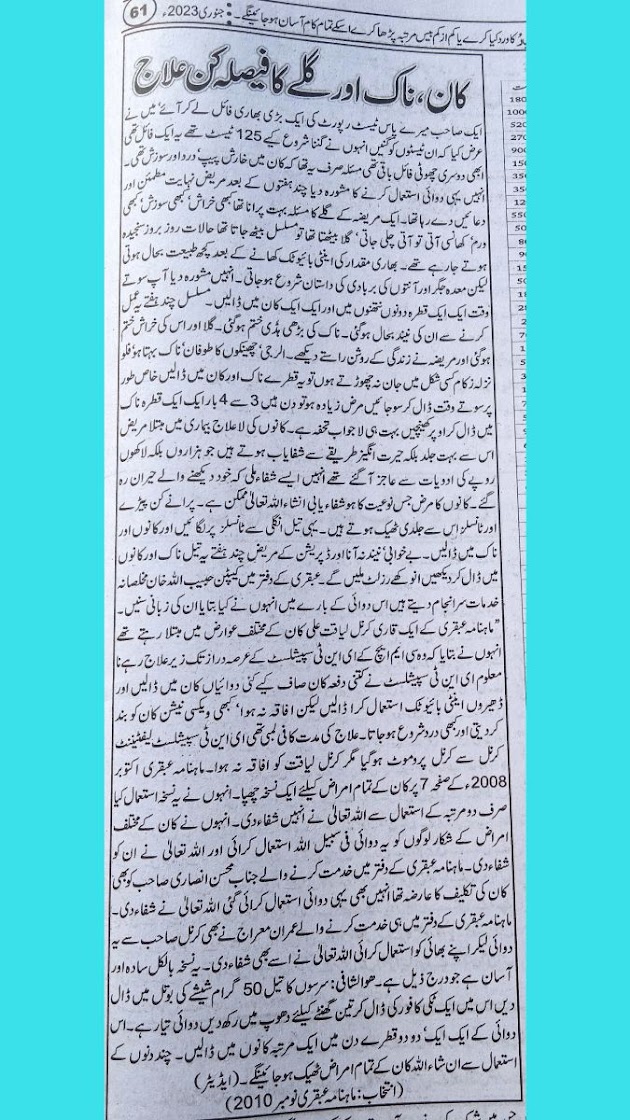 61
جنوری 2023ء
کا ورد کیا کرے یا کم از کم بیس مرتبہ پڑھا کرے اسکے تمام کام آسان ہو جائینگے۔
کان، ناک اور گلے کا فیصلہ کن علاج
ایک صاحب میرے پاس ٹیسٹ رپورٹ کی ایک بڑی بھاری فائل لے کر آئے میں نے
عرض کیا کہ ان ٹیسٹوں کو گنیں انہوں نے گننا شروع کیے 125 ٹیسٹ تھے یہ ایک فائل تھی
ابھی دوسری چھوٹی فائل باقی تھی مسئلہ صرف یہ تھا کہ کان میں خارش پیپ درد اور سوزش تھی۔
انہیں یہی دوائی استعمال کرنے کا مشورہ دیا چند ہفتوں کے بعد مریض نہایت مطمئن اور
دعائیں دے رہا تھا۔ ایک مریضہ کے گلے کا مسئلہ بہت پرانا تھا کبھی خراش، کبھی سوزش، کبھی
ورم، کھانسی آتی تو آتی چلی جاتی، گلا بیٹھتا تھا تو مسلسل بیٹھ جاتا تھا حالات روز بروز سنجیدہ
ہوتے جا رہے تھے۔ بھاری مقدار کی اینٹی بائیوٹک کھانے کے بعد کچھ طبیعت بحال ہوتی
لیکن معدہ جگر اور آنتوں کی بربادی کی داستان شروع ہو جاتی۔ انہیں مشورہ دیا آپ سوتے
وقت ایک ایک قطرہ دونوں نتھنوں میں اور ایک ایک کان میں ڈالیں۔ مسلسل چند ہفتے یہ عمل
کرنے سے ان کی نیند بحال ہو گئی۔ ناک کی بڑھی ہڈی ختم ہو گئی۔ گلا اور اس کی خراش ختم
ہو گئی اور مریضہ نے زندگی کے روشن راستے دیکھے۔ الرجی، چھینکوں کا طوفان، ناک بہتا ہو، فلو
نزلہ زکام کسی شکل میں جان نہ چھوڑتے ہوں تو یہ قطرے ناک اور کان میں ڈالیں خاص طور
پر سوتے وقت ڈال کر سو جائیں مرض زیادہ ہو تو دن میں 3 سے 4 بار ایک ایک قطرہ ناک
میں ڈال کر اوپر کھینچیں بہت ہی لا جواب تحفہ ہے۔ کانوں کی لاعلاج بیماری میں مبتلا مریض
اس سے بہت جلد بلکہ حیرت انگیز طریقے سے شفایاب ہوتے ہیں جو ہزاروں بلکہ لاکھوں
روپے کی ادویات سے عاجز آ گئے تھے انہیں ایسے شفاء ملی کہ خود دیکھنے والے حیران رہ
گئے۔ کانوں کا مرض جس نوعیت کا ہو شفایابی انشاء اللہ تعالیٰ ممکن ہے۔ پرانے کن پیڑے
اور ٹانسلز اس سے جلدی ٹھیک ہوتے ہیں۔ یہی تیل انگلی سے ٹانسلز پر لگائیں اور کانوں اور
ناک میں ڈالیں۔ بے خوابی، نیند نہ آنا اور ڈپریشن کے مریض چند ہفتے یہ تیل ناک اور کانوں
میں ڈال کر دیکھیں انوکھے رزلٹ ملیں گے۔ عبقری کے دفتر میں کیپٹن حبیب اللہ خان مخلصانہ
خدمات سرانجام دیتے ہیں اس دوائی کے بارے میں انہوں نے کیا بتایا ان کی زبانی سنیں۔
”ماہنامہ عبقری کے ایک قاری کرنل لیاقت علی کان کے مختلف عوارض میں مبتلا رہتے تھے
انہوں نے بتایا کہ وہ سی ایم ایچ کے ای این ٹی سپیشلسٹ کے عرصہ دراز تک زیر علاج رہے نا
معلوم ای این ٹی سپیشلسٹ نے کتنی دفعہ کان صاف کیے کئی دوائیاں کان میں ڈالیں اور
ڈھیروں اینٹی بائیوٹک استعمال کرا ڈالیں لیکن افاقہ نہ ہوا، کبھی ویکسی نیشن کان کو بند
کر دیتی اور کبھی درد شروع ہو جاتا۔ علاج کی مدت کافی لمبی تھی ای این ٹی سپیشلسٹ لیفٹیننٹ
کرنل سے کرنل پروموٹ ہو گیا مگر کرنل لیاقت کو افاقہ نہ ہوا۔ ماہنامہ عبقری اکتوبر
2008ء کے صفحہ 7 پر کان کے تمام امراض کیلئے ایک نسخہ چھپا۔ انہوں نے یہ نسخہ استعمال کیا
صرف دو مرتبہ کے استعمال سے اللہ تعالیٰ نے انہیں شفاء دی۔ انہوں نے کان کے مختلف
امراض کے شکار لوگوں کو یہ دوائی فی سبیل اللہ استعمال کرائی اور اللہ تعالیٰ نے ان کو
شفاء دی۔ ماہنامہ عبقری کے دفتر میں خدمت کرنے والے جناب محسن انصاری صاحب کو بھی
کان کی تکلیف کا عارضہ تھا انہیں بھی یہی دوائی استعمال کرائی گئی اللہ تعالیٰ نے شفاء دی۔
ماہنامہ عبقری کے دفتر میں ہی خدمت کرنے والے عمران معراج نے بھی کرنل صاحب سے یہ
دوائی لیکر اپنے بھائی کو استعمال کرائی اللہ تعالیٰ نے اسے بھی شفاء دی۔ یہ نسخہ بالکل سادہ اور
آسان ہے جو درج ذیل ہے۔ ھوالشافی: سرسوں کا تیل 50 گرام شیشے کی بوتل میں ڈال
دیں اس میں ایک ٹکی کافور کی ڈال کر تین گھنٹے کیلئے دھوپ میں رکھ دیں دوائی تیار ہے۔ اس
دوائی کے ایک ایک، دو دو قطرے دن میں ایک مرتبہ کانوں میں ڈالیں۔ چند دنوں کے
استعمال سے ان شاء اللہ کان کے تمام امراض ٹھیک ہو جائینگے۔ (ایڈیٹر)
(انتخاب: ماہنامہ عبقری نومبر 2010)